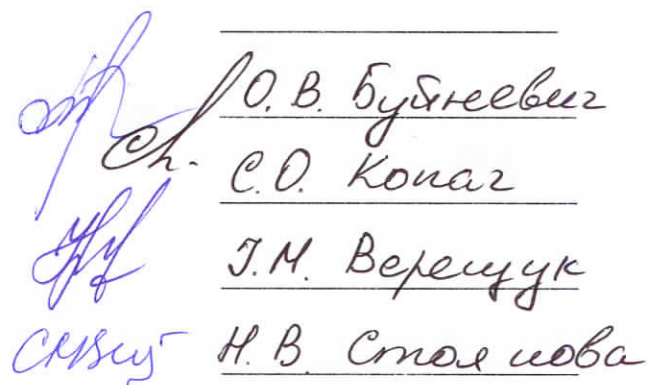 О.В. Буйневич
С.О. Копач
І.М. Верещук
Н.В. Стоянова